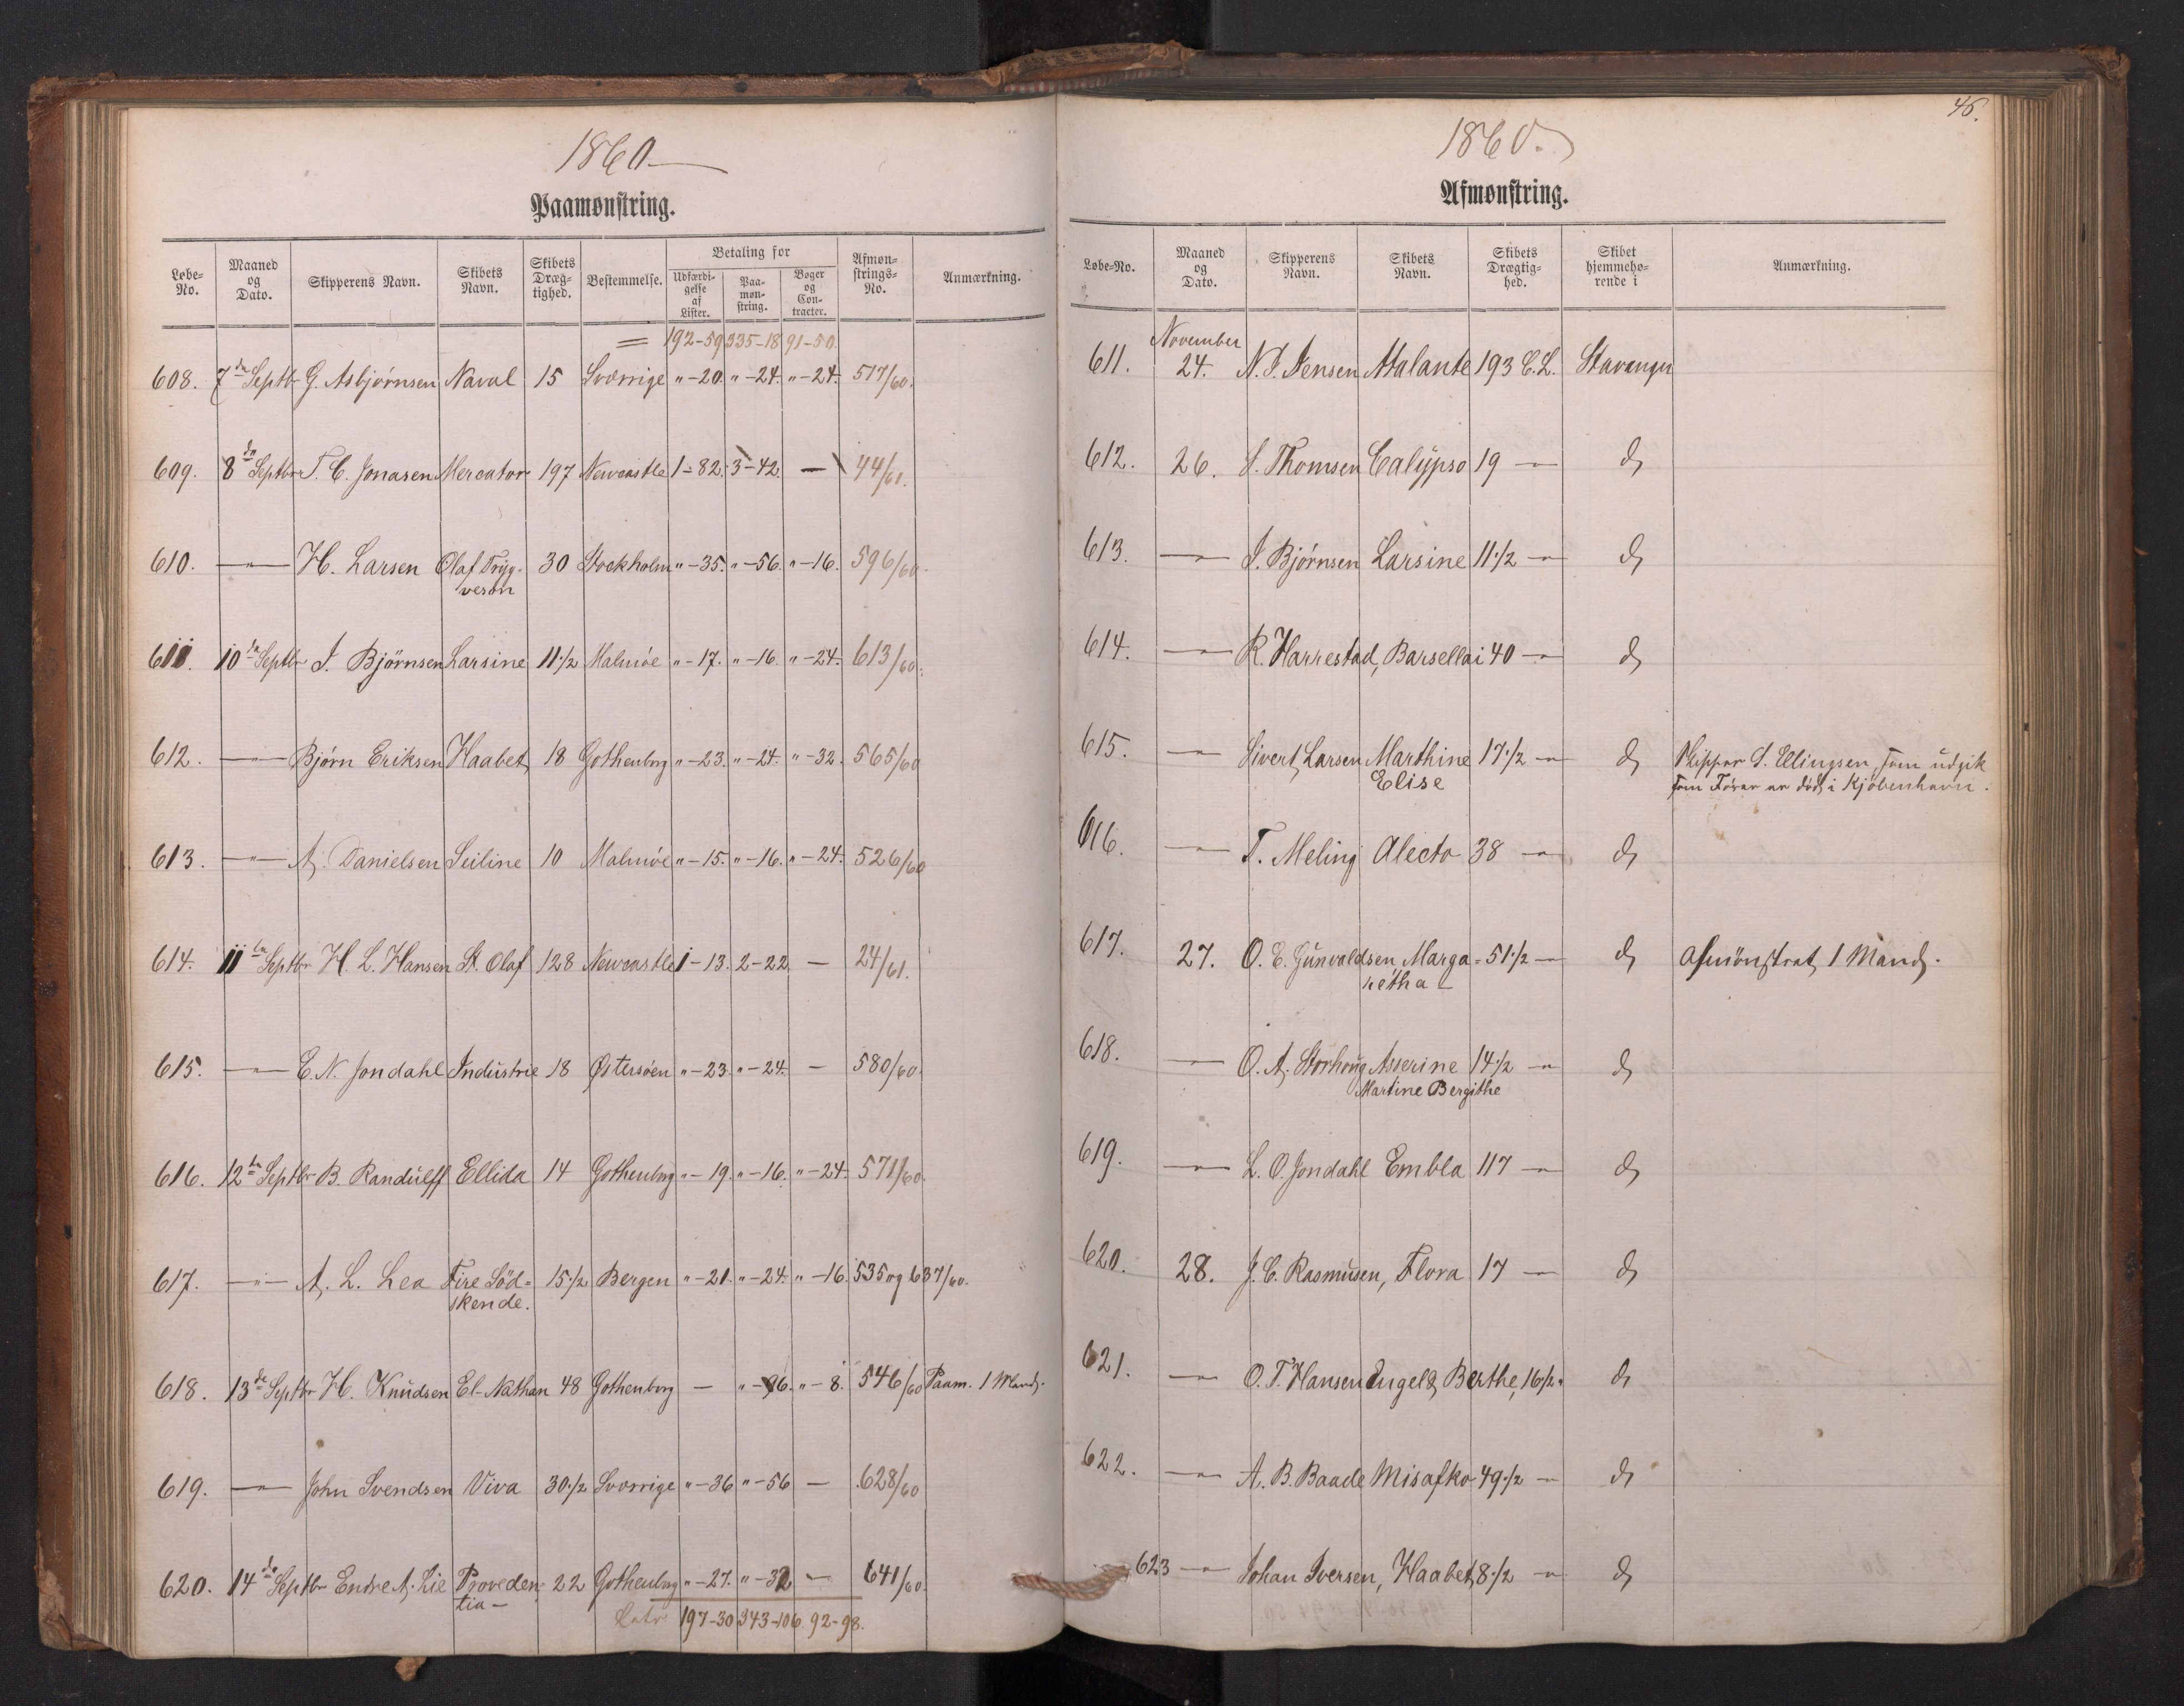 1860
Paamønstring.
Løbe-No. Maaned og Dato. Skipperens Navn. Skibets Navn. Skibets Dræg-tighed. Bestemmelse. Betaling for Udfærdi-gelse af Lister. Paa-møn-string. Bøger og Con-tracter. Afmøn-strings-No. Anmærkning.
192-59 335-18 91-50.
608. 7de Septbr G. Asbjørnsen Naval 15 Sverrige "-20. "-24. "-24. 517/60.
609. 8de Septbr T. C. Jonasen Mercator 197 Newcastle 1-82. 3-42. — 44/61.
610. —"— H. Larsen Olaf Tryg- 30 Stockholm "-35. "-56. "-16. 596/60.
veson
611. 10de Septbr I. Bjørnsen Larsine 11½ Malmøe "-17. "-16. "-24. 613/60.
612. —"— Bjørn Eriksen Haabet 18 Gothenborg "-23. "-24. "-32. 565/60
613. —"— A. Danielsen Seiline 10 Malmøe "-15. "-16. "-24. 526/60
614. 11te Septbr H. L. Hansen St. Olaf 128 Newcastle 1-13. 2-22 — 24/61.
615. —"— E. N. Jondahl Industrie 18 Østersøen "-23. "-24. — 580/60.
616. 12te Septbr B. Randulff Ellida 14 Gothenborg "-19. "-16. "-24. 571/60.
617. —"— A. L. Lea Fire Söd= 15½ Bergen "-21. "-24. "-16. 535 og 637/60.
skende.
618. 13de Septbr H. Knudsen El-Nathan 48 Gothenborg — "-96. "-8. 546/60 Paam. 1 Mand.
619. —"— John Svendsen Viva 30½ Sverrige "-36 "-56 — 628/60
620. 14de Septbr Endre A. Lie Proveden- 22 Gothenborg "-27. "-32 — 641/60.
tia—
Latr 197-30 343-106. 92-98.
46.
1860.
Afmønstring.
Løbe-No. Maaned og Dato. Skipperens Navn. Skibets Navn. Skibets Drægtig-hed. Skibet hjemmehø-rende i Anmærkning.
November
611. 24. N. J. Jensen Atalante 193 C.L. Stavanger
612. 26. S. Thomsen Calypso 19 —"— do
613. —"— I. Bjørnsen Larsine 11½ —"— do
614. —"— R. Harrestad, Barsellai 40 —"— do
615. —"— Sivert Larsen Marthine 17½ —"— do Skipper S. Ellingsen, som udgik
Elise som Fører er död i Kjöbenhavn.
616. —"— T. Meling Alecto 38 —"— do
617. 27. O. E. Gunvaldsen Marga= 51½ —"— do Afmönstret 1 Mand.
retha—
618. —"— O. A. Storhoug Asserine 14½ —"— do
Martine Bergithe
619. —"— L. O. Jondahl Embla 117 —"— do
620. 28. J. C. Rasmusen, Flora 17 — do
621. —"— O. T. Hansen Engel Berthe, 16½ " do
622. —"— A. B. Baade Misafko 49½ —"— do
623 —"— Johan Iversen, Haabet, 8½ —"— do